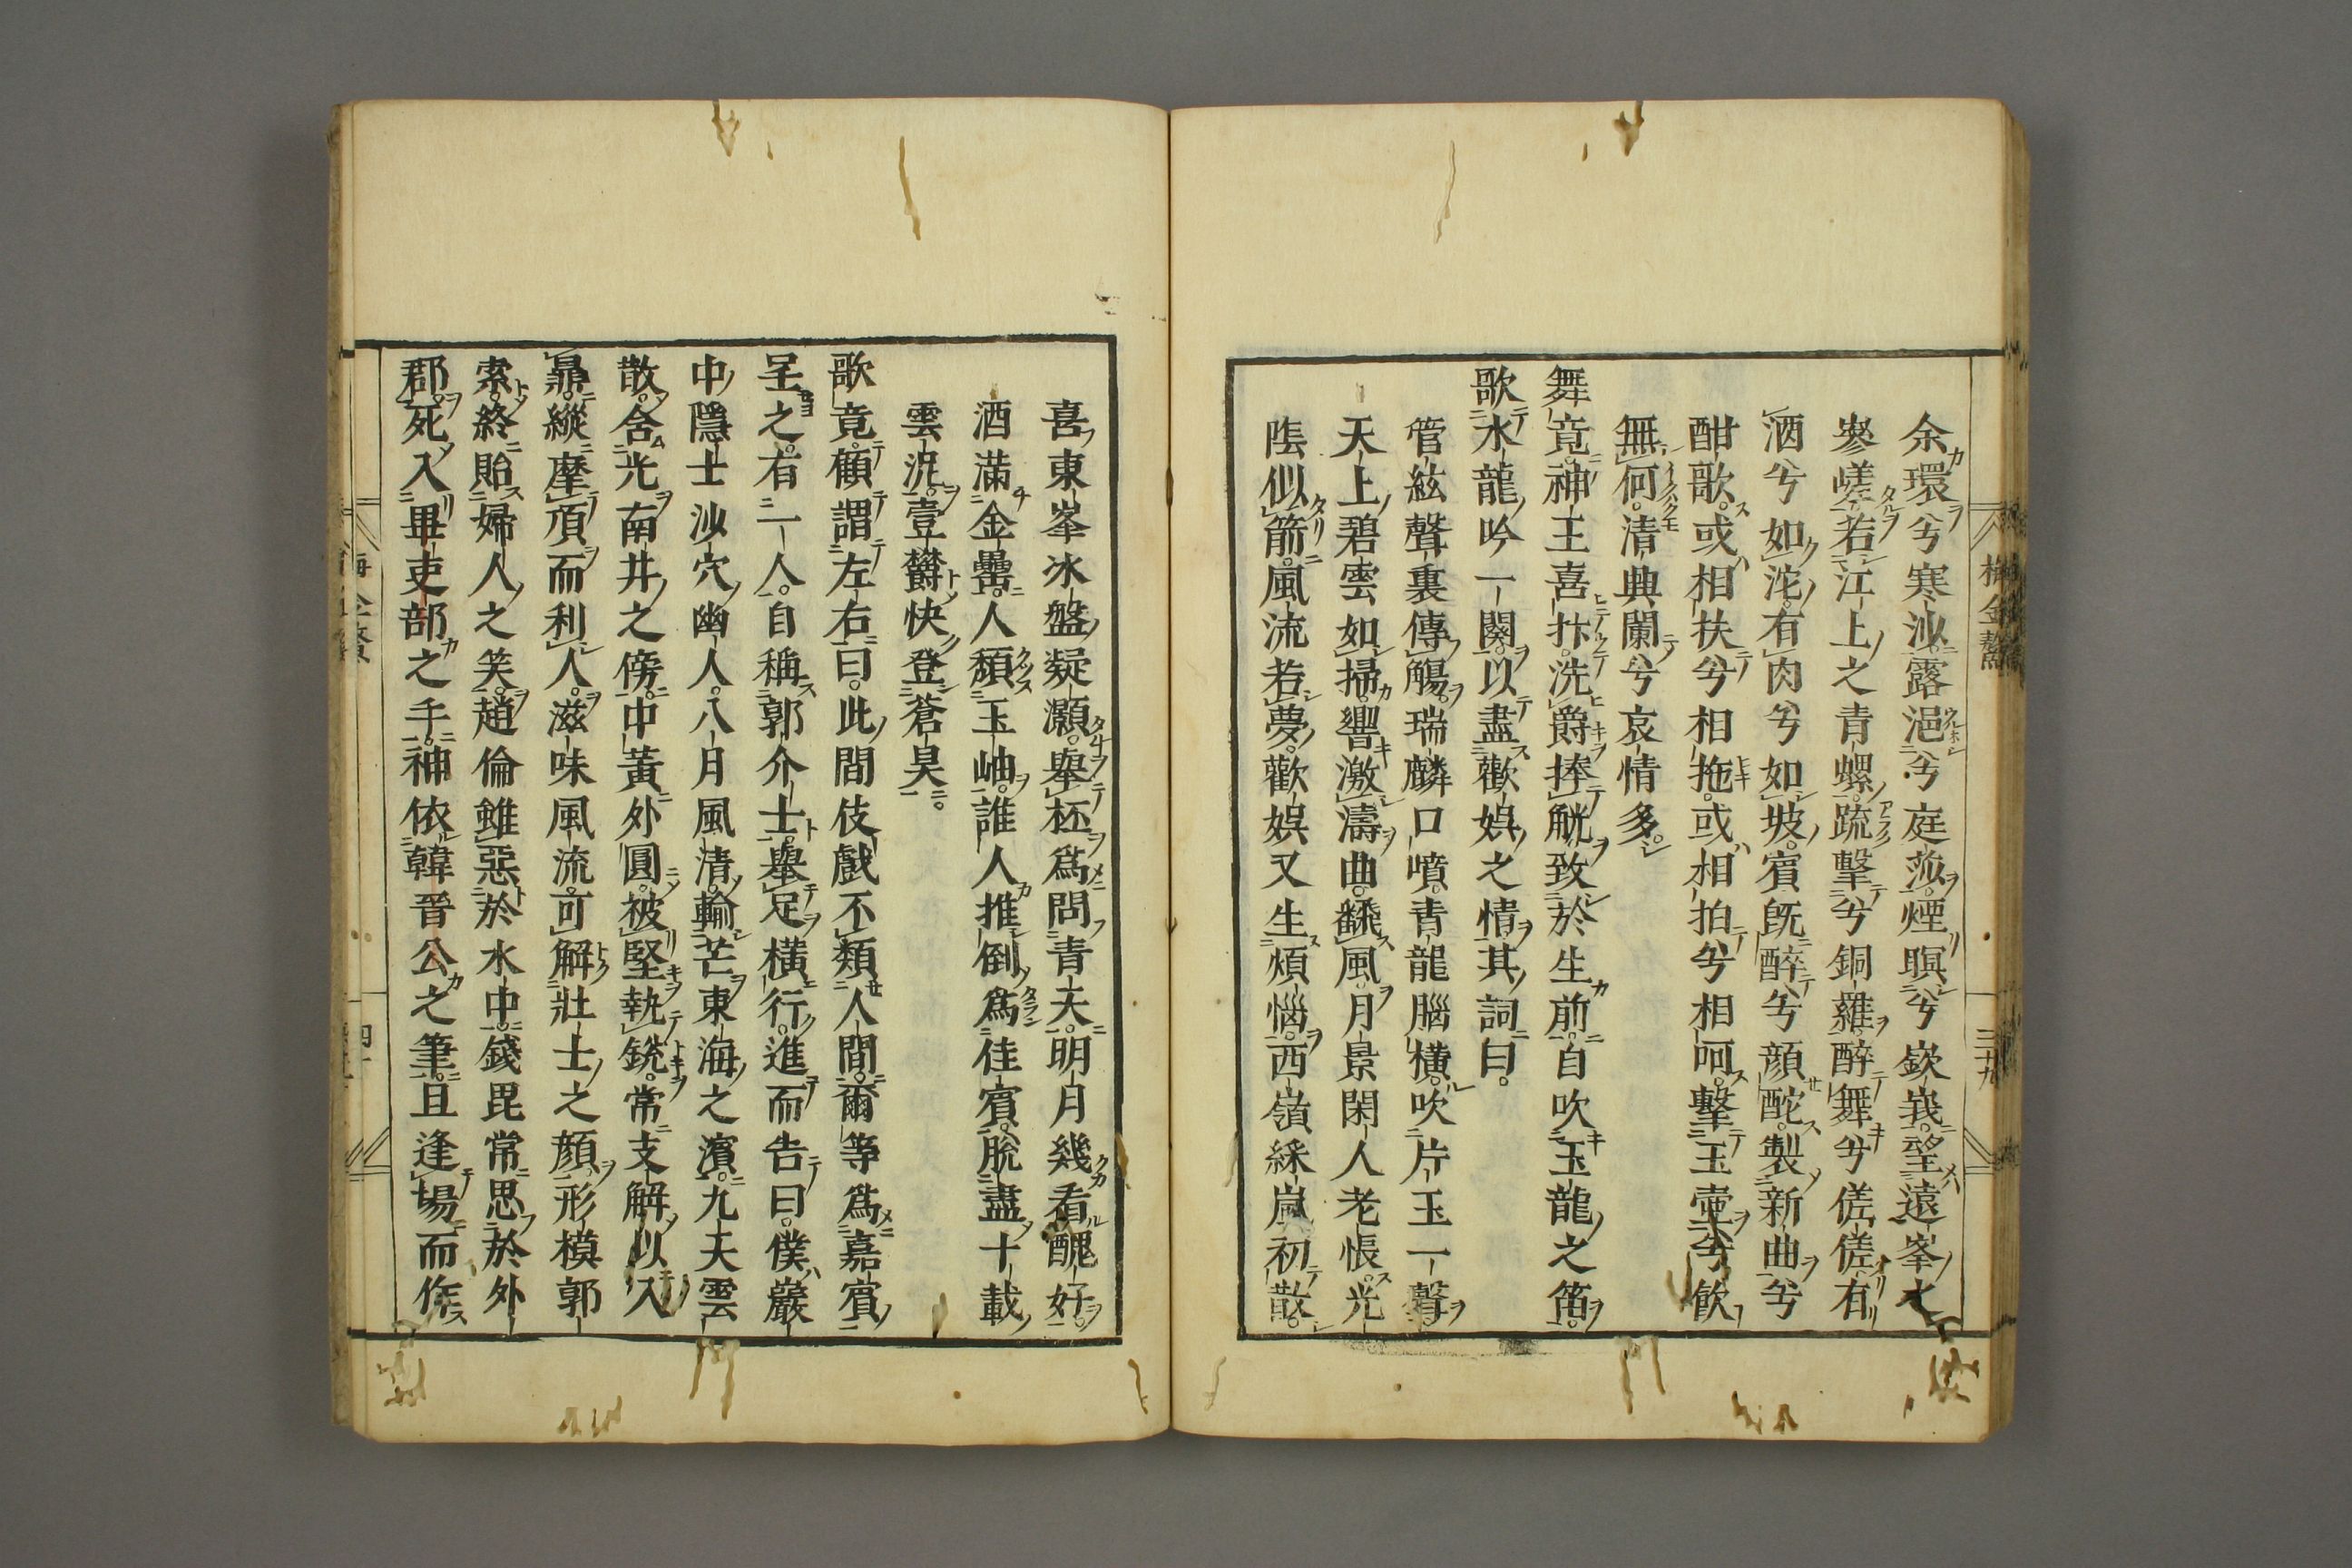 余環兮寒沙。露浥兮庭莎。煙暝兮嶔峩。望遠峯之
嵾嵯。若江上之青螺。疏擊兮銅羅。醉舞兮傞傞。有
酒兮如沱。有肉兮如坡。賓旣醉兮顔酡。製新曲兮
酣歌。或相扶兮相拖。或相拍兮相呵。擊玉壺兮飲
無何。清興闌兮哀情多。
舞竟。神王喜抃。洗爵捧觥。致於生前。自吹玉龍之笛。
歌水龍吟一闋。以盡歡娛之情。其詞曰。
管絃聲裏傳觴。瑞麟口噴。青龍腦。橫吹片玉一聲。
天上碧雲如掃。響激濤曲。飜風月。景閑人老。悵光
陰似箭。風流若夢。歡娛又生煩惱。西嶺綵嵐初散。
喜東峯冰盤凝灝。舉杯爲問青天。明月幾看醜好。
酒滿金罍。人頹玉岫。誰人推倒。爲佳賓。脫盡十載
雲泥。壹鬱快登蒼昊。
歌竟。顧謂左右曰。此間伎戲不類人間。爾等爲嘉賓
呈之。有一人。自稱郭介士。舉足橫行。進而告曰。僕巖
中隱士沙穴幽人。八月風清。輸芒東海之濱。九天雲
散。含光南井之傍。中黃外圓。被堅執銳。常支解以入
鼎。縱摩頂而利人。滋味風流。可解壯士之顔。形模郭
索。終貽婦人之笑。趙倫雖惡於水中。錢毘常思於外
郡。死入畢吏部之手。神依韓晉公之筆。且逢場而作
梅金鰲
三十九